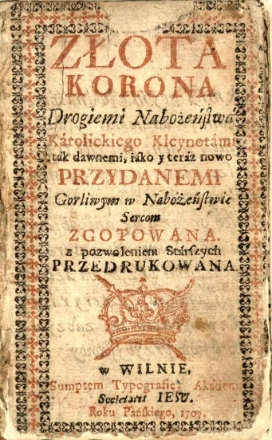 ZŁOTA
KORONA
Drogiemi Nabożeństwá
Kátolickiego Kleynotámi
ták dawnemi, iáko y teráz nowo
PRZYDANEMI
Gorliwym w Nabożeństwie
Sercom
ZGOTOWANA.
z pozwoleniem Stárszych
PRZEDRUKOWANA
w WILNIE,
Sumptem Typográfiey Akádem:
Societatis IESU.
Roku Páńskiego, 1707.